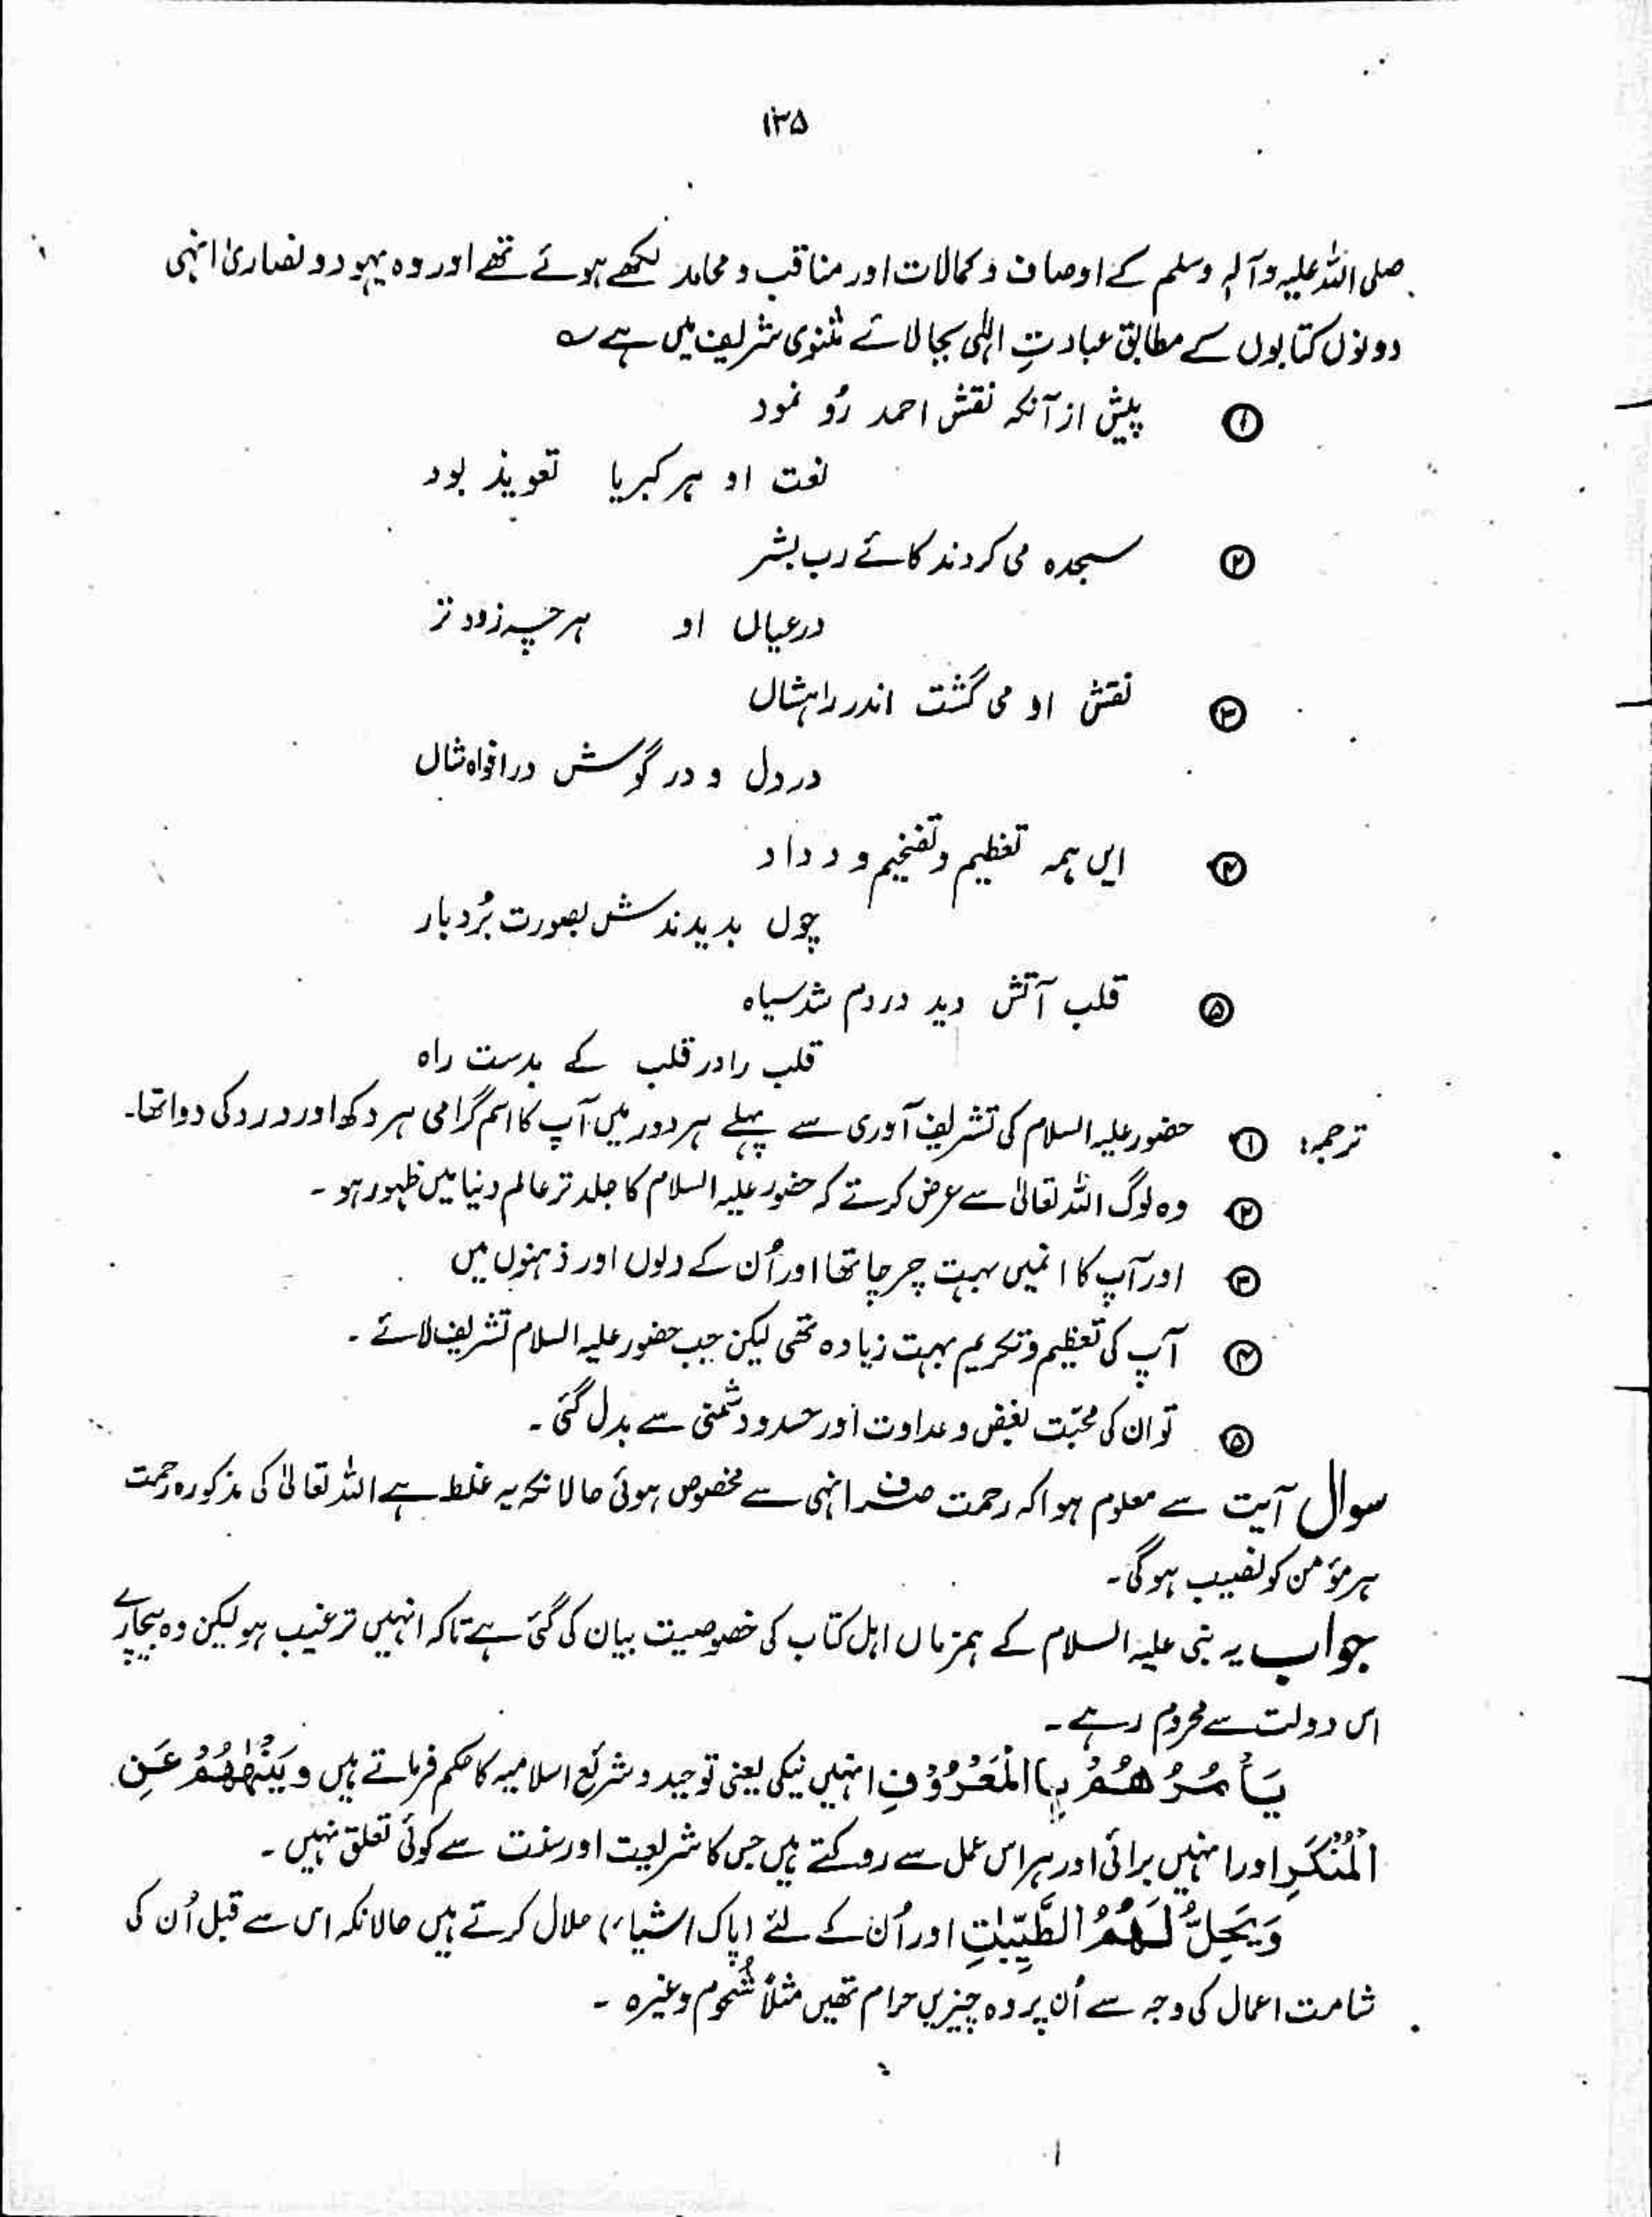 ۱۳۵
صلی اللہ علیہ وآلہٖ وسلم کے اوصاف و کمالات اور مناقب و محامد لکھے ہوئے تھے اور وہ یہود و نصاریٰ انہی
دونوں کتابوں کے مطابق عبادتِ الٰہی بجا لائے مثنوی شریف میں ہے ؎
① پیش از آنکہ نقش احمد رُو نمود
نعت او ہر کبریا تعویذ بود
② سجدہ می کردند کائے رب بشر
درعیاں او ہرچہ زود تر
③ نقش او می گشت اندر راہشاں
در دل و در گوش در افواہ شاں
④ ایں ہمہ تعظیم و تفخیم و وداد
چوں بدیدندش بصورت بُرد بار
⑤ قلب آتش دید دردم شد سیاہ
قلب را در قلب کے بدست راہ
ترجمہ: ① حضور علیہ السلام کی تشریف آوری سے پہلے ہر دور میں آپ کا اسم گرامی ہر دکھ اور درد کی دوا تھا۔
② وہ لوگ اللہ تعالیٰ سے عرض کرتے کہ حضور علیہ السلام کا جلد تر عالم دنیا میں ظہور ہو ۔
③ اور آپ کا انمیں بہت چرچا تھا اور اُن کے دلوں اور ذہنوں میں
④ آپ کی تعظیم و تکریم بہت زیادہ تھی لیکن جب حضور علیہ السلام تشریف لائے ۔
⑤ تو ان کی محبّت بغض و عداوت اور حسد و دشمنی سے بدل گئی ۔
سوال آیت سے معلوم ہوا کہ رحمت صرف انہی سے مخصوص ہوئی حالانکہ یہ غلط ہے اللہ تعالیٰ کی مذکورہ رحمت
ہر مؤمن کو نصیب ہوگی۔
جواب یہ نبی علیہ السلام کے ہمزماں اہل کتاب کی خصوصیت بیان کی گئی ہے تاکہ انہیں ترغیب ہو لیکن وہ بیچارے
اس دولت سے محروم رہے ۔
یَأْمُرُهُمْ بِاالْمَعْرُوْفِ انہیں نیکی یعنی توحید و شرائع اسلامیہ کا حکم فرماتے ہیں وَیَنْهٰهُمْ عَنِ
الْمُنْکَرِ اور انہیں برائی اور ہر اس عمل سے روکتے ہیں جس کا شریعت اور سنت سے کوئی تعلق نہیں ۔
وَیَحِلُّ لَهُمُ الطَّیِّبٰتِ اور اُن کے لئے (پاک اشیاء) حلال کرتے ہیں حالانکہ اس سے قبل اُن کی
شامت اعمال کی وجہ سے اُن پر وہ چیزیں حرام تھیں مثلاً شُحوم وغیرہ ۔